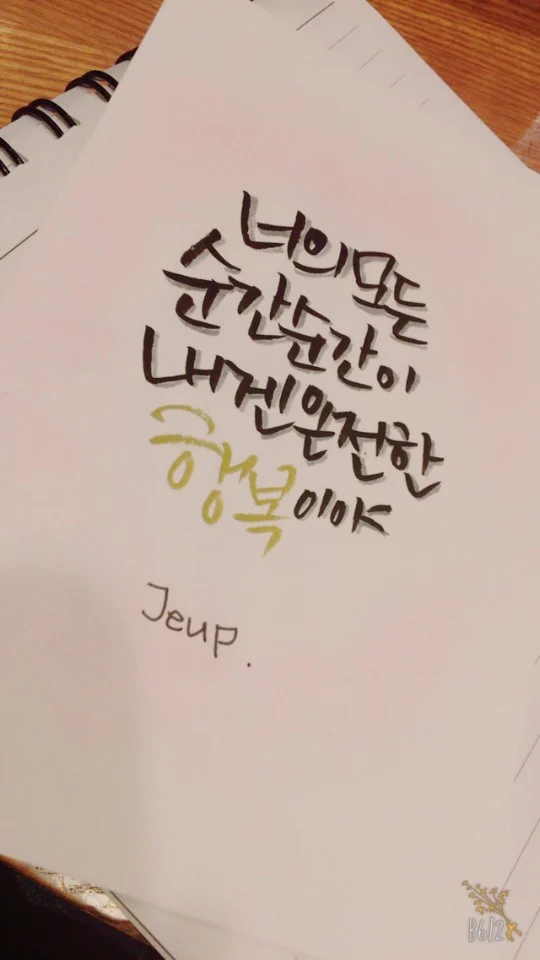 너의 모든
순간순간이
내겐 완전한
행복이야
Jeup.
B612